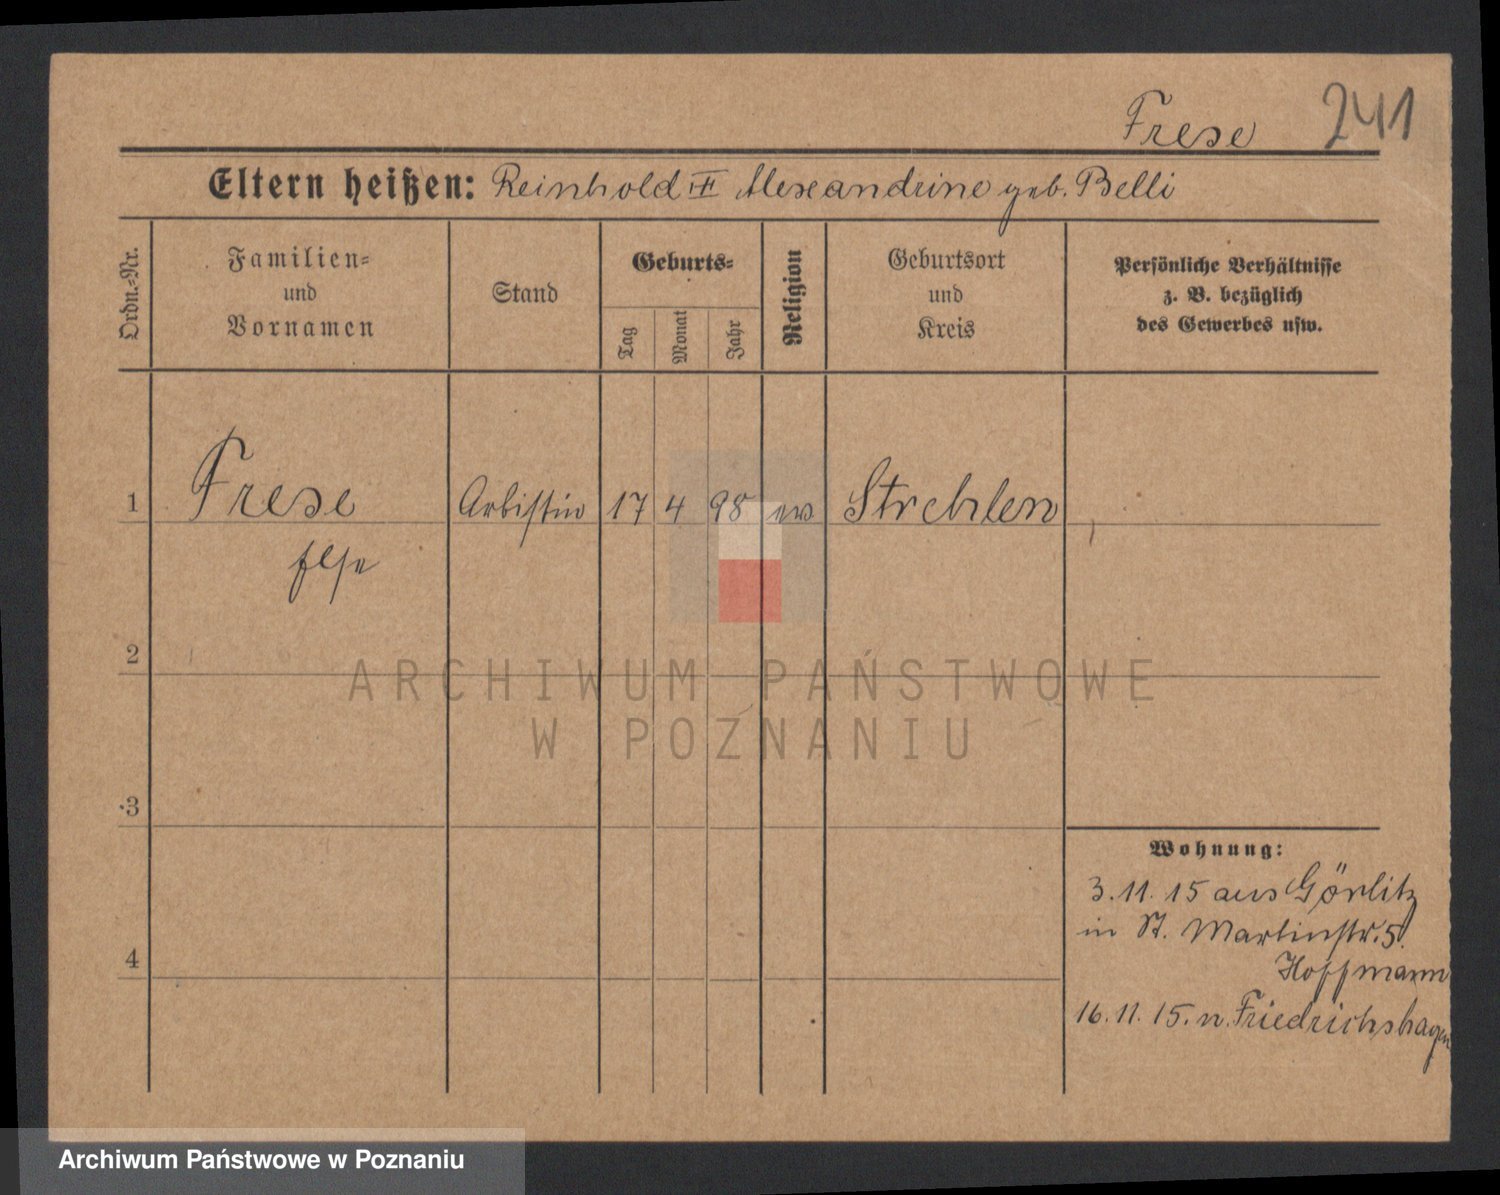 Frese 241
Eltern heißen: Reinhold u Alexandrine geb. Belli
Ordn.-Nr.
Familien-
und
Vornamen
Stand
Geburts-
Tag
Monat
Jahr
Religion
Geburtsort
und
Kreis
Persönliche Verhältnisse
z. B. bezüglich
des Gewerbes usw.
1 Frese Artistin 17 4 98 ev Strehlen
Else
2
ARCHIWUM PAŃSTWOWE
W POZNANIU
3
Wohnung:
3.11.15 aus Görlitz
in St. Martinstr. 5
Hoffmann
4
16.11.15. n. Friedrichshagen
Archiwum Państwowe w Poznaniu